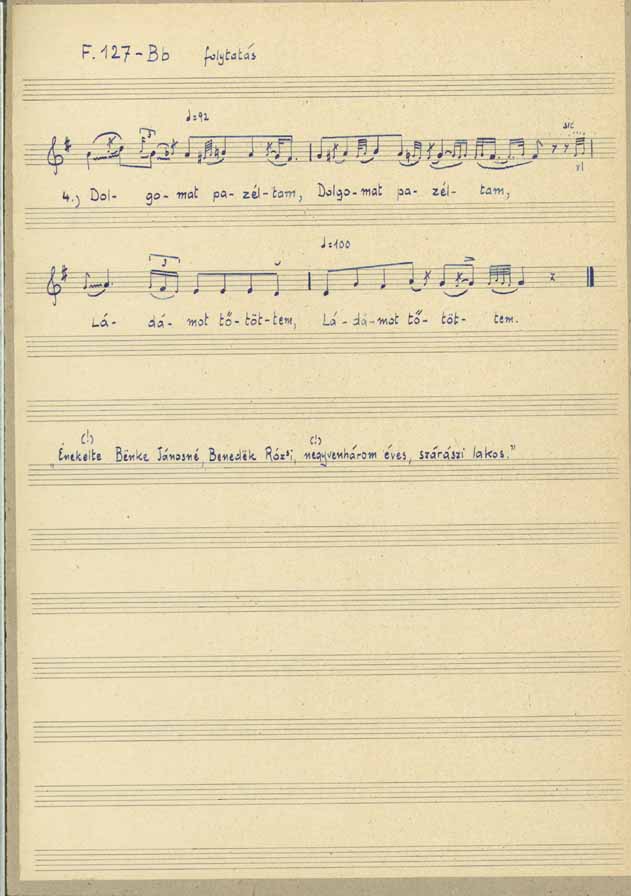 F. 127 - Bb folytatás
♩=92
3 3 sic
4.) Dol- go- mat pa- zél- tam, Dolgo- mat pa- zél- tam,
♩=100
3
Lá- dá- mot tő- töt- tem, Lá- dá- mot tő- töt- tem.
(!) (!)
"Énekëlte Bënke Jánosné, Benedëk Rózsi, negyvenhárom éves, szárászi lakos."